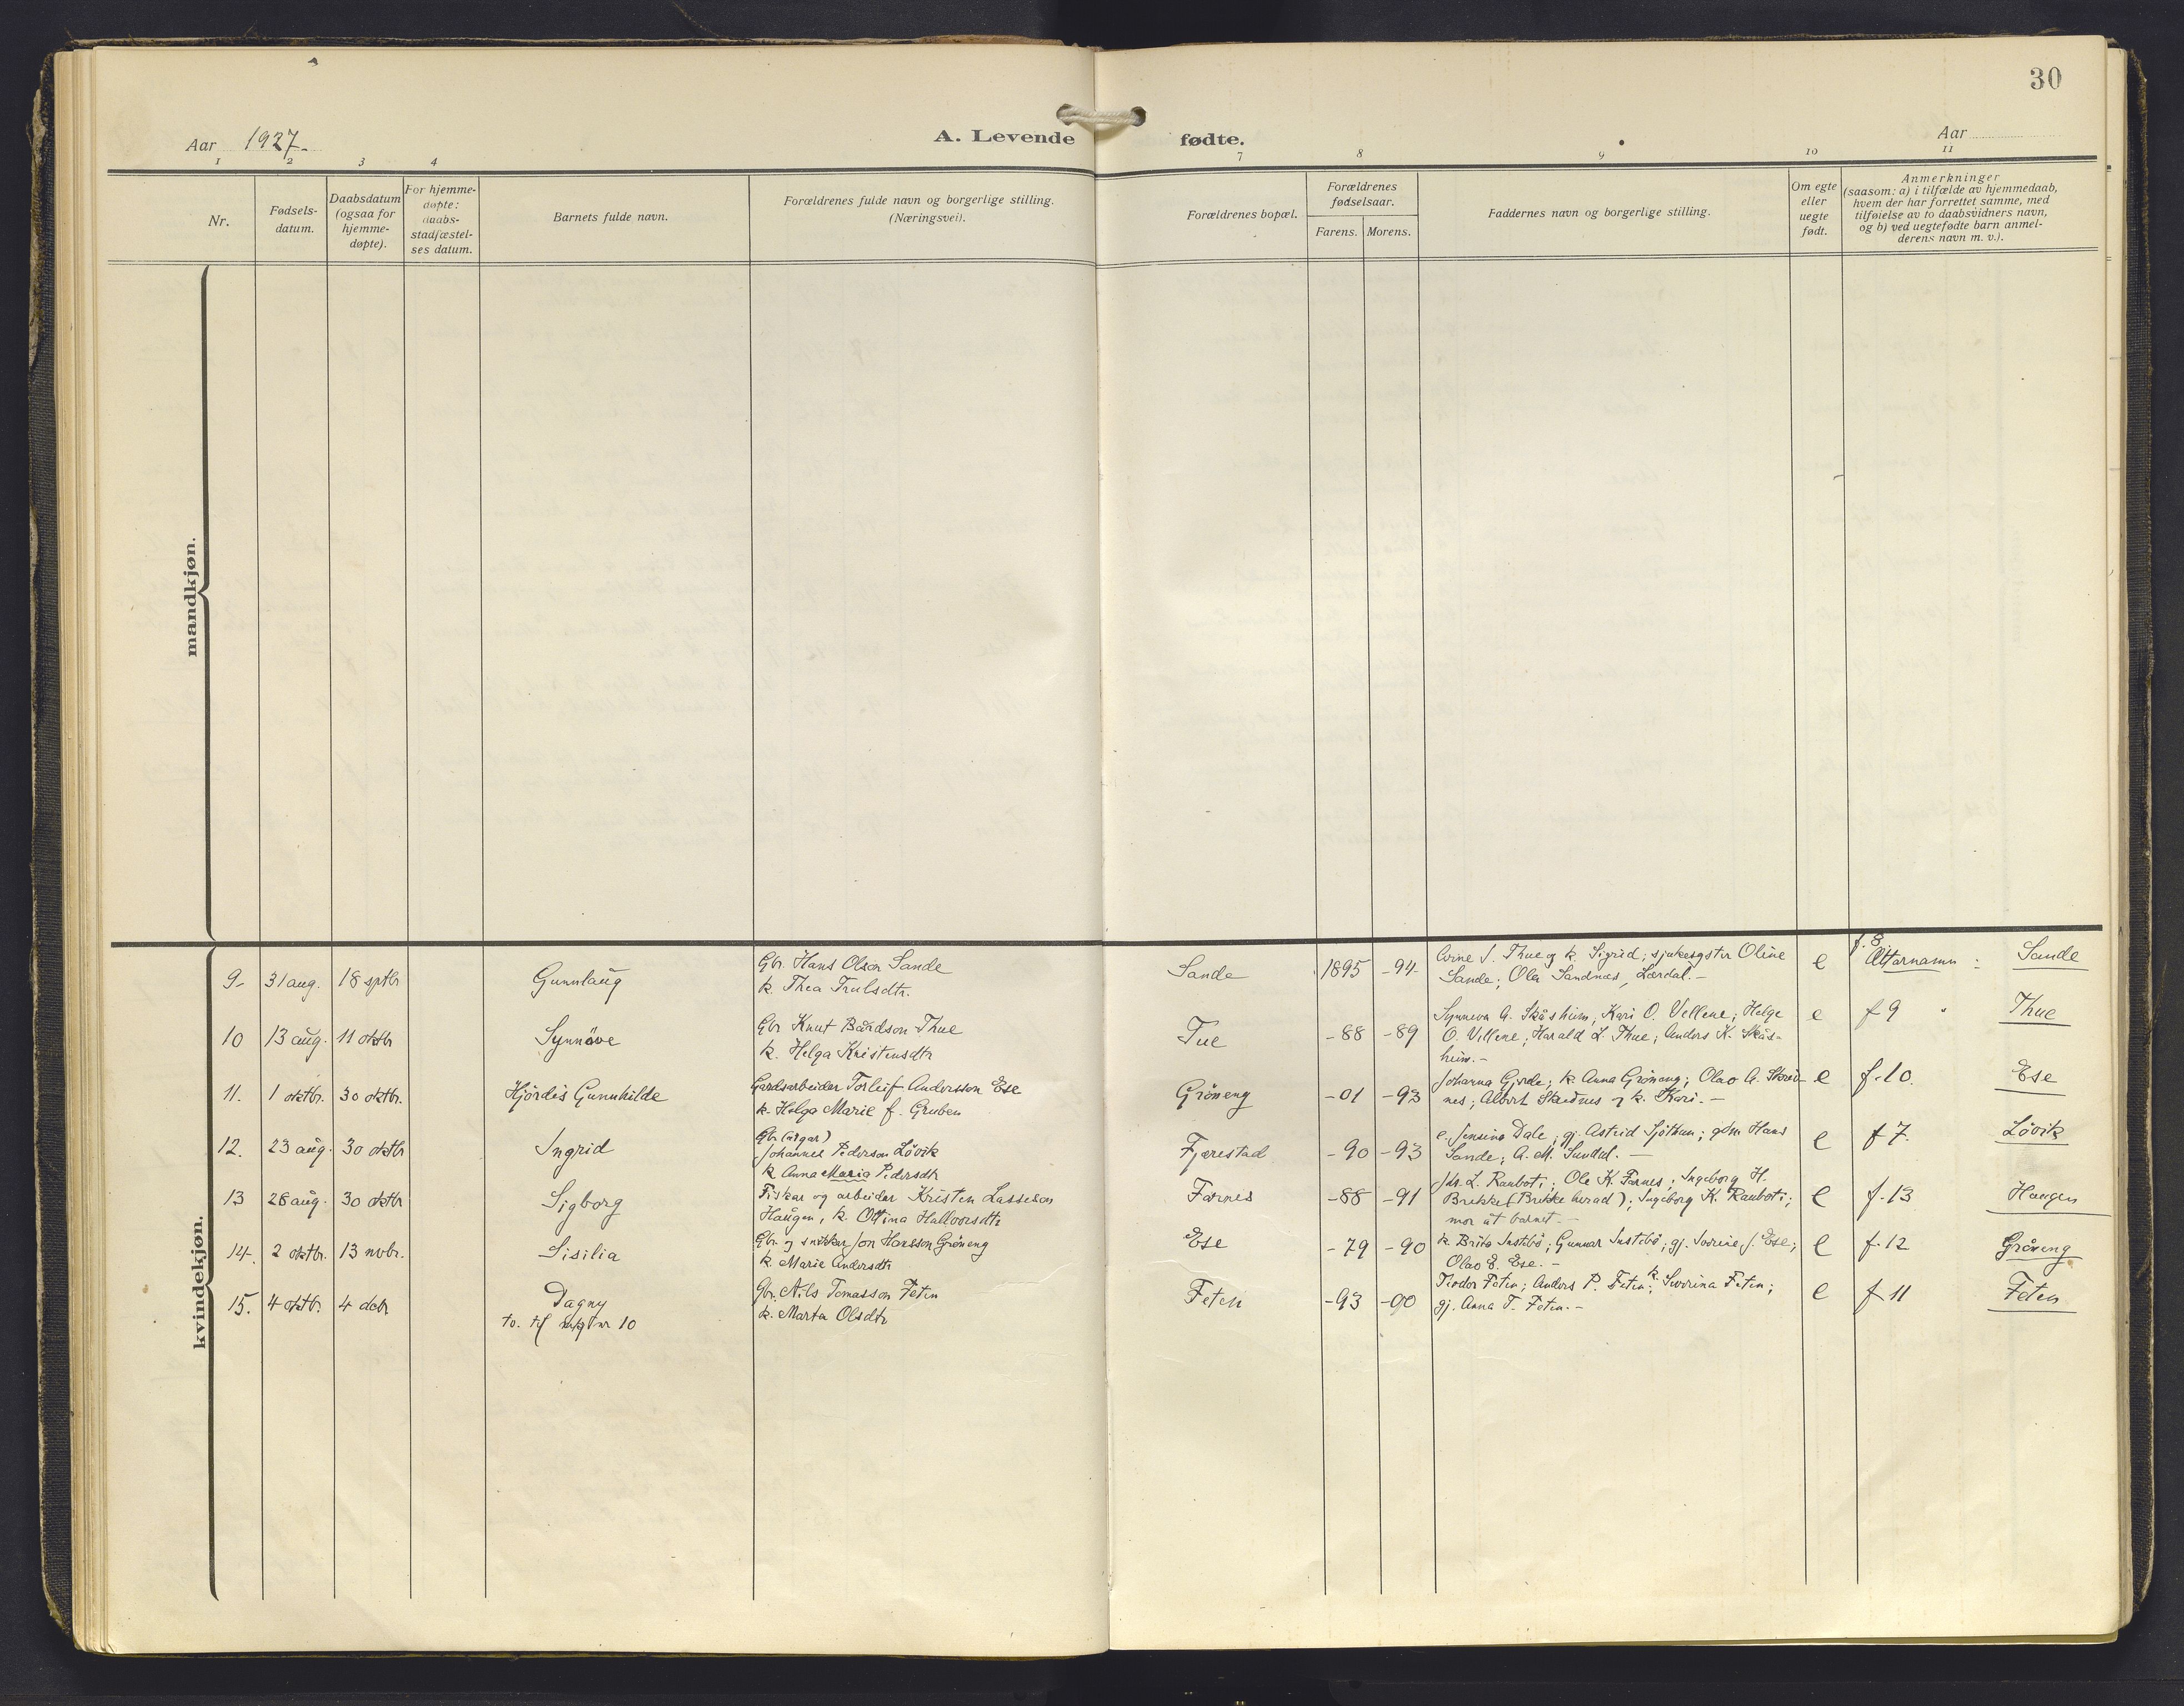 30
Aar 1927.
A. Levende fødte.
Aar
1 2 3 4 7 8 9 10 11
Nr.
Fødsels-
datum.
Daabsdatum
(ogsaa for
hjemme-
døpte).
For hjemme-
døpte:
daabs-
stadfæstel-
ses datum.
Barnets fulde navn.
Forældrenes fulde navn og borgerlige stilling.
(Næringsvei).
Forældrenes bopæl.
Forældrenes
fødselsaar.
Farens. Morens.
Faddernes navn og borgerlige stilling.
Om egte
eller
uegte
født.
Anmerkninger
(saasom: a) i tilfælde av hjemmedaab,
hvem der har forrettet samme, med
tilføielse av to daabsvidners navn,
og b) ved uegtefødte barn anmel-
derens navn m. v.).
mandkjøn.
kvindekjøn.
9. 31 aug. 18 sptbr Gunnlaug
Gbr. Hans Olson Sande
k. Thea Trulsdtr.
Sande 1895 -94
Arne J. Thue og k. Sigrid; sjukesyster Oline
Sande; Ola Sandnes, Lærdal.-
e
f. 8.
Ættarnamn: Sande
10 13 aug. 11 oktbr Synnöve
Gbr Knut Bårdson Thue
k. Helga Kristensdtr
Tue -88 -89
Synneva A. Skåsheim; Kari O. Vellene; Helge
O. Vellene; Harald L. Thue; Anders K. Skås-
heim.-
e f 9 " Thue
11. 1 oktbr. 30 oktbr. Hjördis Gunnhilde
Gardsarbeider Torleif Andersson Ese
k. Helga Marie f. Gruben
Gröneng -01 -93
Johanna Gjerde; k. Anna Gröneng; Olav A. Skreid-
nes; Albert Skreidnes og k. Kari.-
e f. 10. Ese
12. 23 aug. 30 oktbr Ingrid
Gbr. (eigar)
Johannes Pederson Lövik
k Anna Maria Pedersdtr
Fjærestad -90 -93
e. Jensina Dale; gj. Astrid Sjöthun; gdm Hans
Sande; A. M. Sundal. -
e f 7. Lövik
13 28 aug. 30 oktbr Sigborg
Fiskar og arbeider Kristen Lasseson
Haugen, k. Oltina Hallvorsdtr
Farnes -88 -91
Jhs. L. Rauboti; Ole K. Farnes; Ingeborg H.
Brekke (Brekke herad); Ingeborg K. Rauboti;
mor åt barnet.-
e f. 13 Haugen
14. 2 oktbr. 13 nvbr. Sisilia
Gbr. og snikkar Jon Hansson Gröneng
k. Marie Andersdtr
Ese -79 -90
k. Brita Instebö; Gunnar Instebö; gj. Sorine J. Ese;
Olav E. Ese. -
e f. 12 Gröneng
15. 4 oktbr. 4 dcbr Dagny
tv. til mkj nr 10
Gbr. Nils Tomasson Feten
k. Marta Olsdtr
Feten -93 -90
Teodor Feten; Anders P. Feten; k. Severina Feten;
gj. Anna T. Feten.-
e f 11 Feten